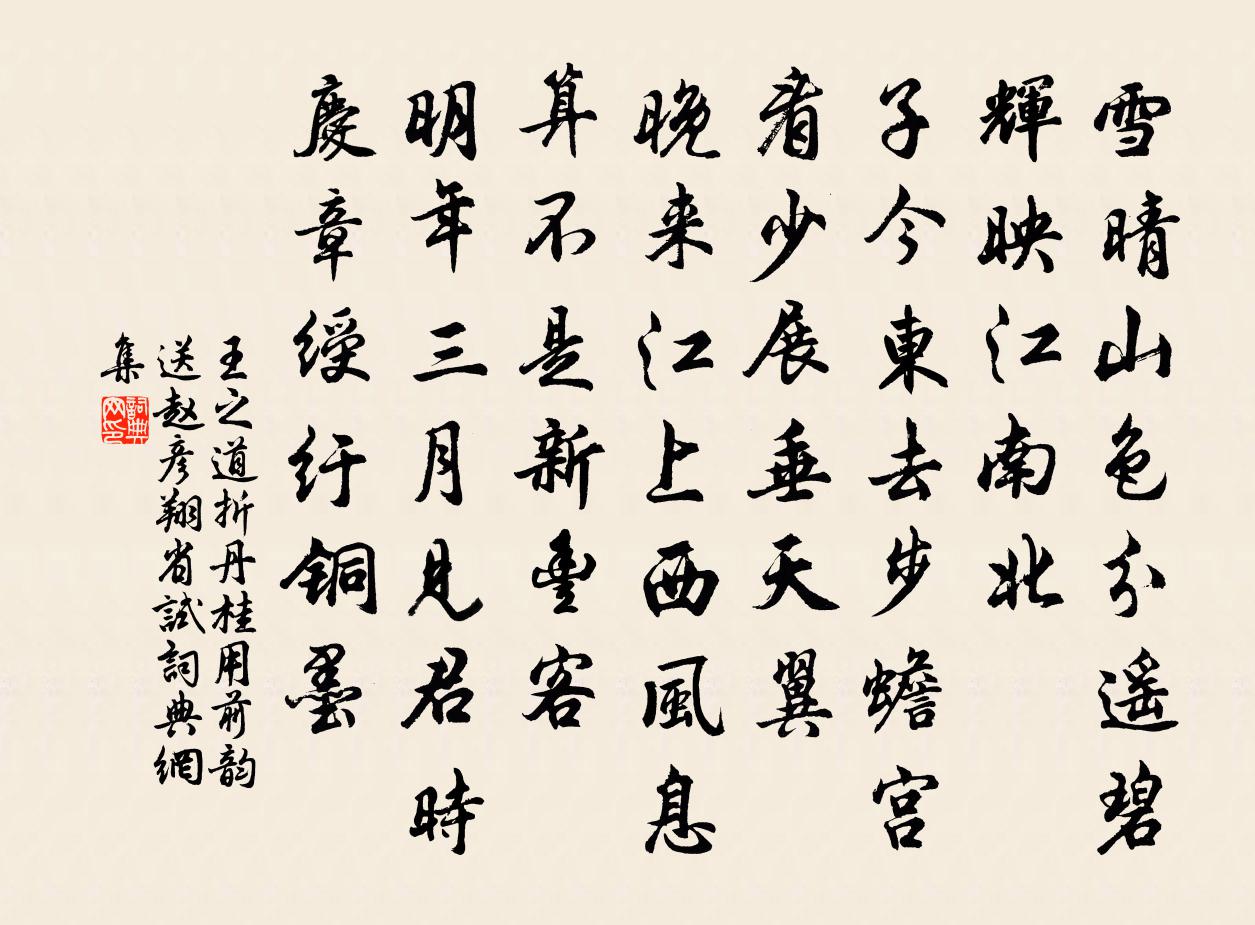 雪晴山色分遥碧
輝映江南北
子今東去步蟾宫
看少展垂天翼
晚来江上西風息
算不是新豊客
明年三月見君時
慶章綬紆銅墨
王之道折丹桂用前韵
送赵彦翔省試詞典網
集
詞典网印